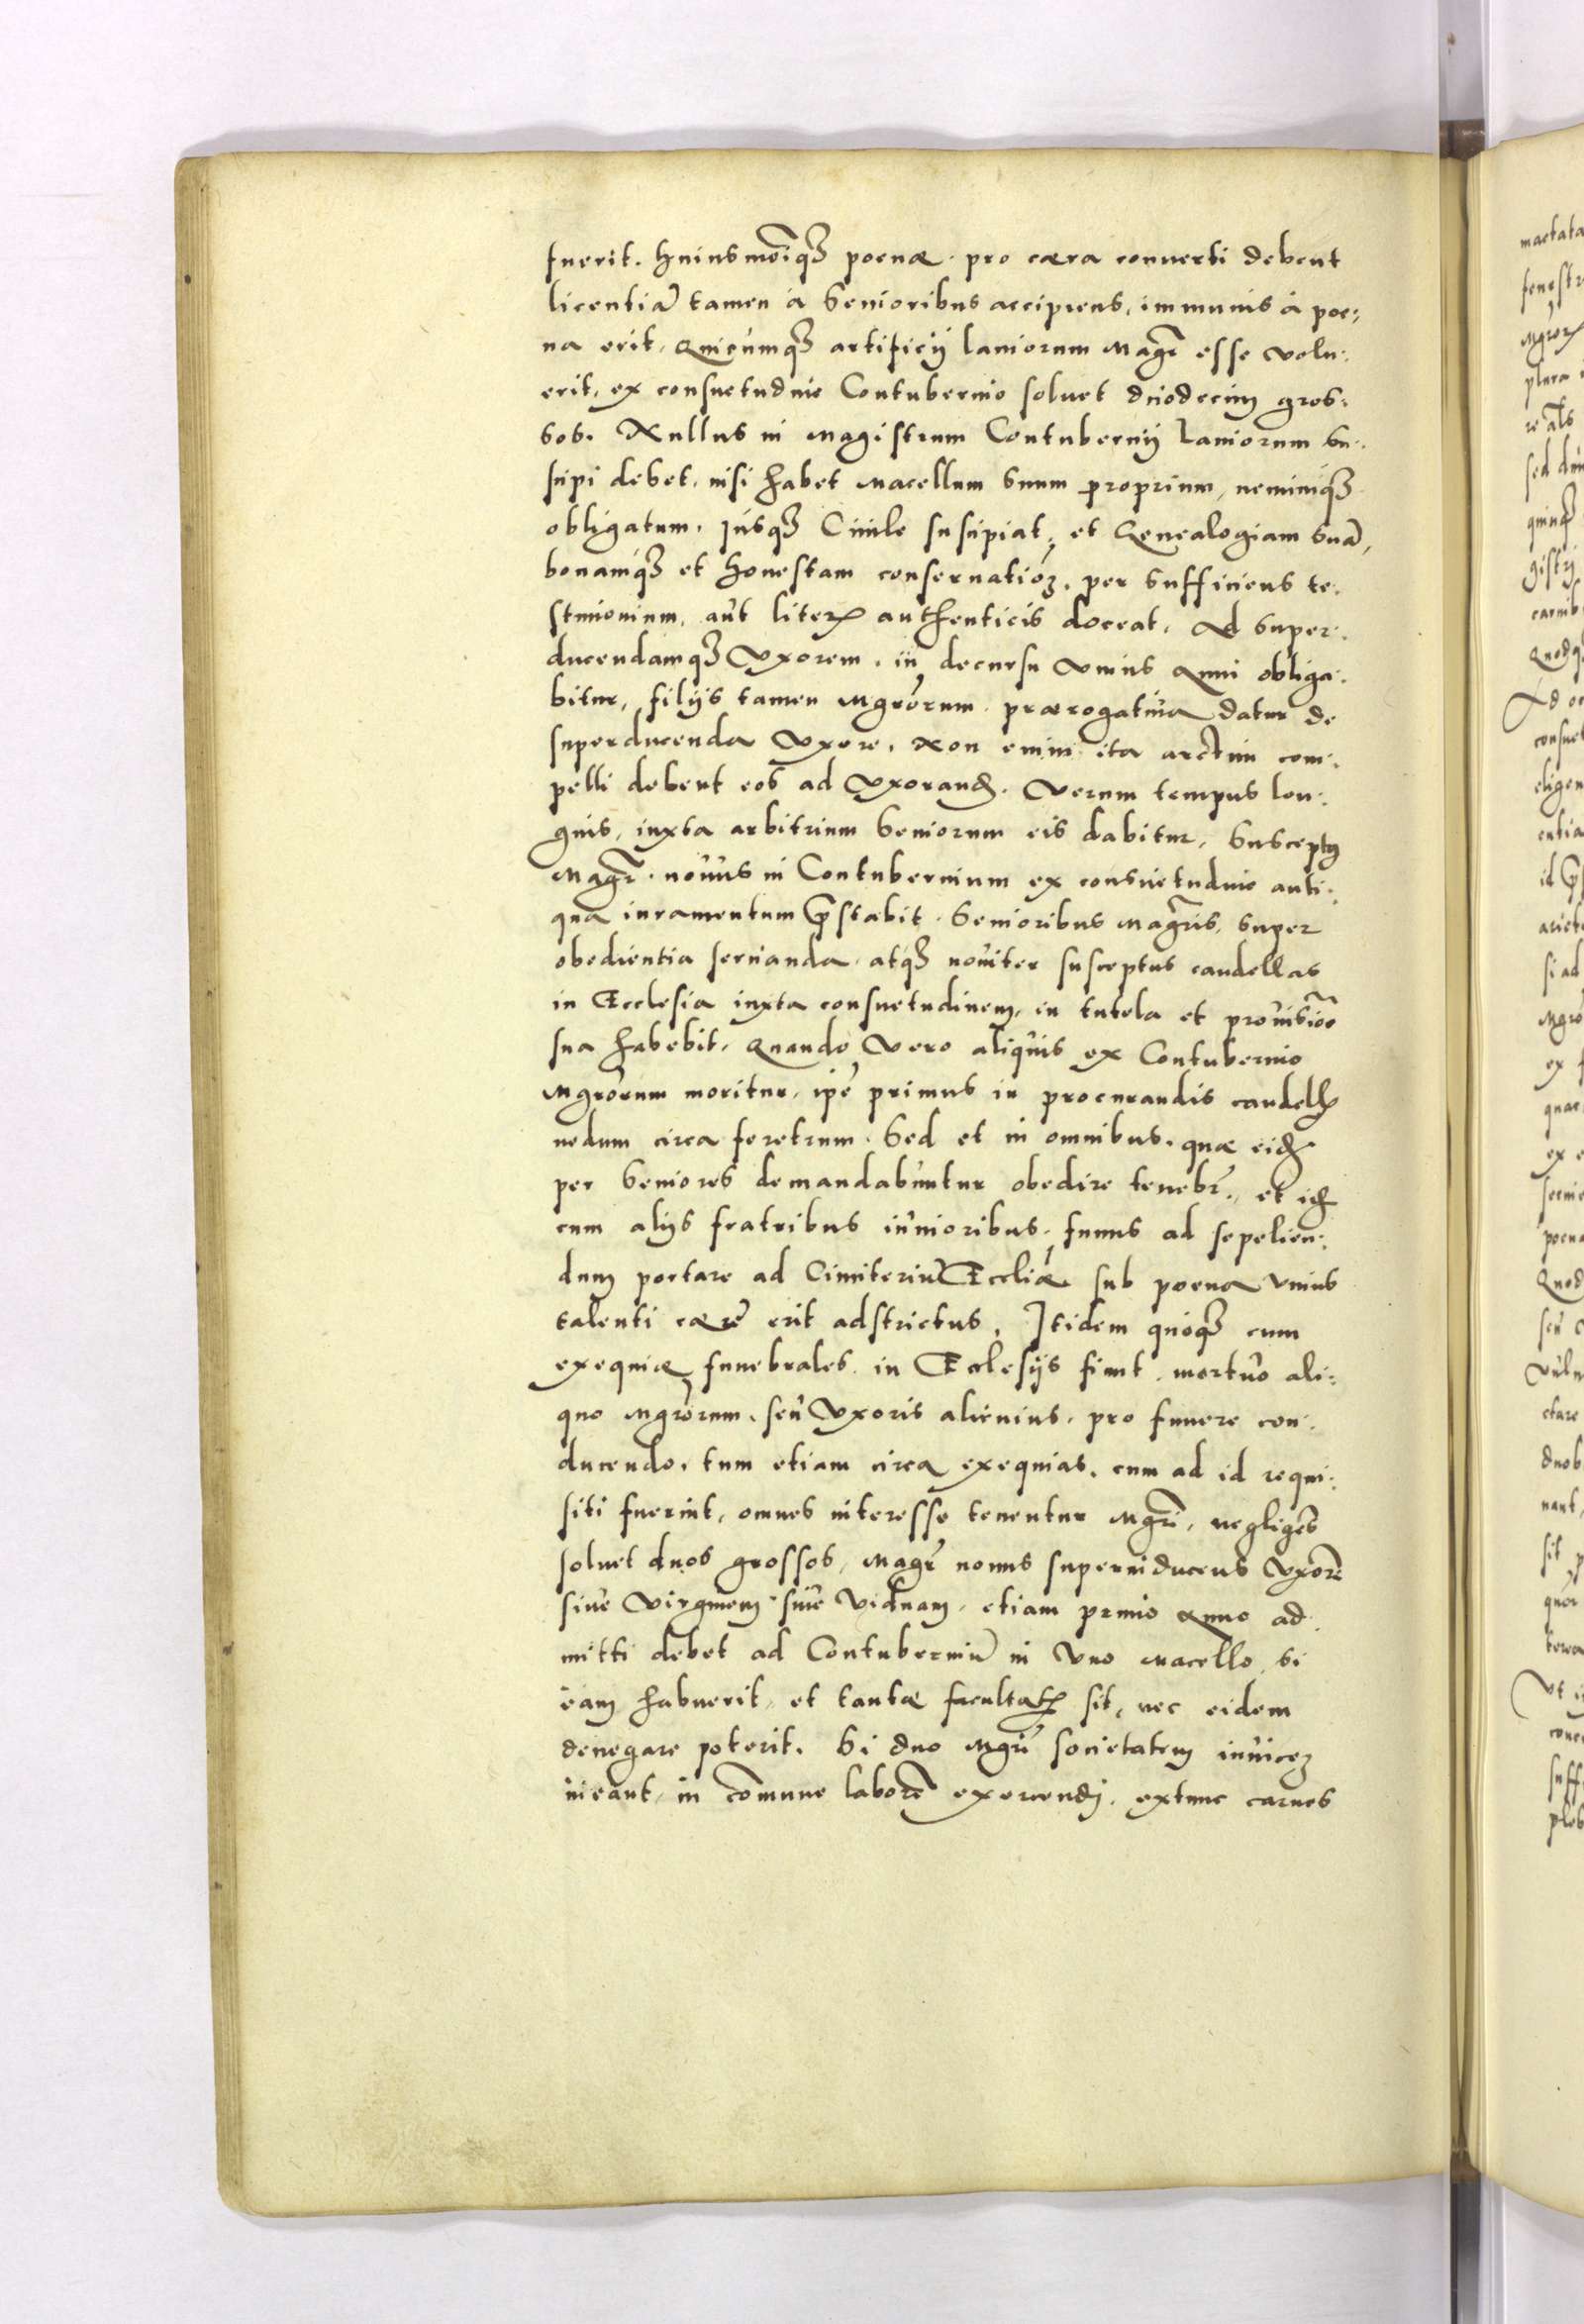 fuerit. Huiusmo͠iq; poenæ. pro cæra conuerti debent
licentia͠ tamen à Senioribus accipiens, immunis à poe⸗
na erit, Quicumq; artificij laniorum Mag͠r esse volu⸗
erit, ex consuetudine Contubernio soluet duodecim gros⸗
sos. Nullus in Magistrum Contubernij Laniorum su⸗
scipi debet, nisi habet Macellum suum proprium, neminiq;
obligatum, Iusq; Ciuile suscipiat, et Genealogiam sua͠,
bonamq; et honestam conseruatio͠z, per sufficiens te⸗
stimonium, aut literꝭ authenticis doceat, Ad super⸗
ducendamq; Vxorem, in decursu vnius Anni obliga⸗
bitur, filijs tamen Mgro͠rum prærogatiua datur de
superducenda Vxore, Non enim ita arctim com⸗
pelli debent eos ad Vxorandꝭ. Verum tempus lon⸗
guis, iuxta arbitrium Seniorum eis dabitur, Susceptꝰ
Mag͠r. nouus in Contubernium ex consuetudine anti⸗
qua iuramentum p͠stabit Senioribus Mag͠ris, super
obedientia seruanda, atq; nouiter susceptus candellas
in Ecclesia iuxta consuetudinem, in tutela et prouisio͠e
sua habebit, Quando vero aliquis ex Contubernio
Mgro͠rum moritur, ip͠e primus in procurandis candellꝭ
nedum circa feretrum. Sed et in omnibus, quæ eidꝭ
per Seniores demandabuntur obedire teneb͠r., et idꝭ
cum alijs fratribus iunioribus, funus ad sepelien⸗
dum portare ad Cimiteriu͠ Eccli͠æ, sub poena vnius
talenti cær͠e erit adstrictus, Itidem quoq; cum
exequiæ funebrales in Ecclesijs fiunt, mortuo ali⸗
quo Mgro͠rum, seu Vxoris alicuius, pro funere con⸗
ducendo, tum etiam circa exequias, cum ad id requi⸗
siti fuerint, omnes interesse tenentur Mgr͠i, neglige͠s
soluet duos grossos, Mag͠r nouus superinducens Vxore͠
siue Virginem siue Viduam, etiam primo Anno ad⸗
mitti debet ad Contuberniu͠ in vno Macello, si
eam habuerit, et tantæ facultatꝭ sit, nec eidem
denegare poterit. Si duo Mgr͠i societatem inuicez
ineant, in co͠mune labore͠ exercendj, extunc carnes